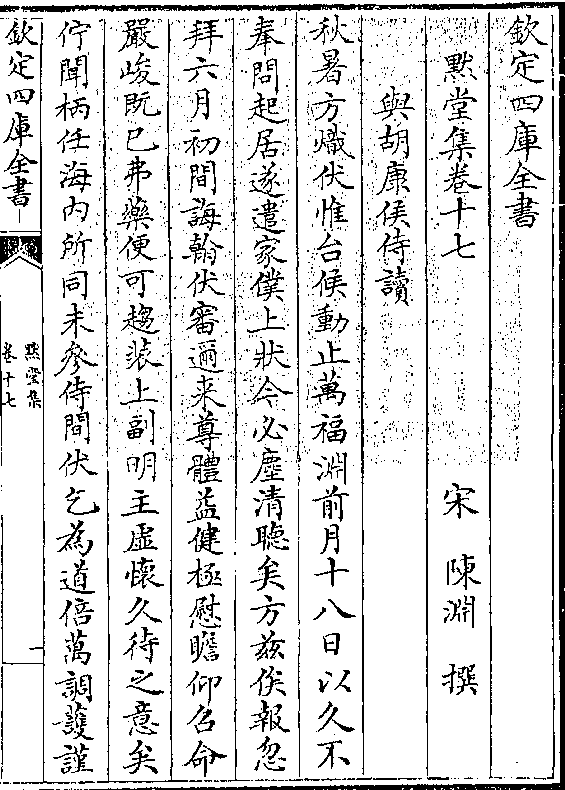 欽定四庫全書
黙堂集卷十七
宋 陳淵 撰
與胡康侯侍讀
秋暑方熾伏惟台候動止萬福淵前月十八日以久不
奉問起居遂遣家僕上狀今必塵清聽矣方兹俟報忽
拜六月初間誨翰伏審邇来尊體益健極慰瞻仰召命
嚴峻既已弗藥便可趨装上副明主虚懷久待之意矣
佇聞柄任海内所同未參侍間伏乞為道倍萬調護謹
欽定四庫全書
黙堂集
卷十七
一